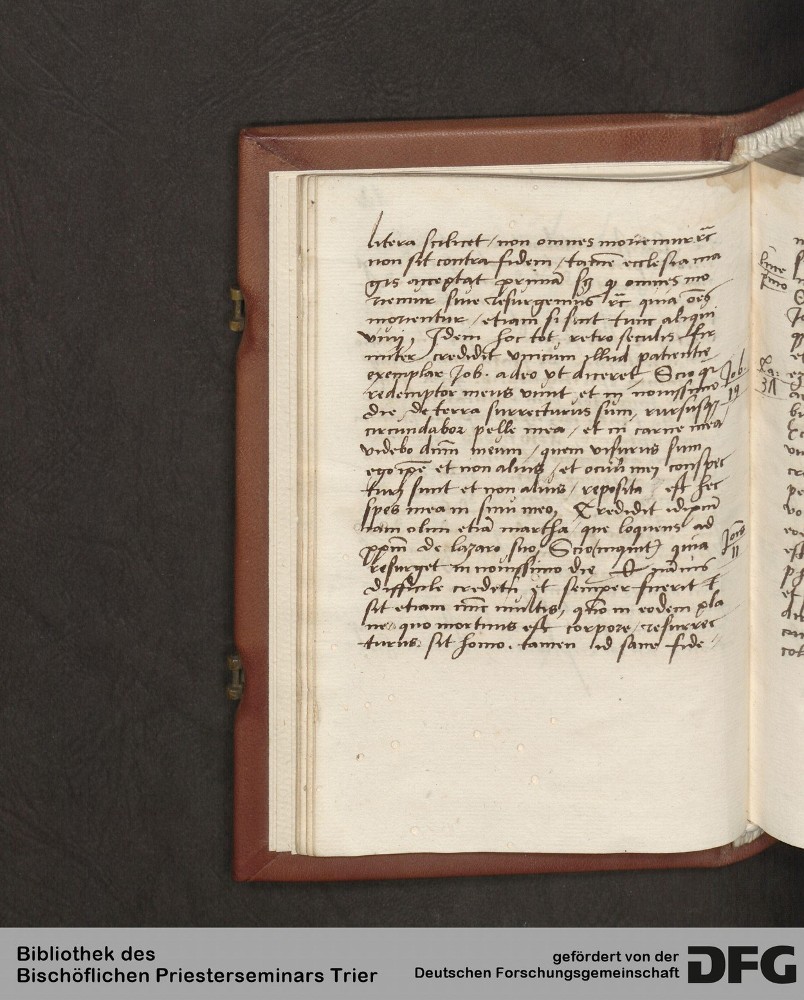 litera scilicet / non omnes moriemur ⁊c̄
non sit contra fidem / tamē ecclesia ma
gis acceptat primā sꝫ ꝙ omnes mo
riemur siue resurgemus ⁊c̄ quia oēs
morientur / etiam si sint tunc aliqui
viui, Idem hoc tot retro seculis fir
miter credidit vnicum illud patientie
exemplar Job. adeo vt diceret Scio qꝫ
redemptor meus viuit et in nouissimo
die / de terra surrecturus sum, rursusqꝫ
circundabor pelle mea / et in carne mea
videbo dm̄ meum / quem visurus sum
ego ip̄e et non alius / et oculi mei conspec
turi sunt et non alius / reposita est hec
spes mea in sinu meo, Credidit idip̄m
nam olim etiā martha / que loquens ad
xp̄m de lazaro suo, Scio (inquit) quia
resurget in nouissimo die Et
difficile creditu et semper fuerit ⁊
sit etiam nūc multis, qūo in eodem pla
ne / quo mortuus est corpore / resurrec
turus sit homo. tamen id sane fide
Job
19
Joan̄
11
Bibliothek des
Bischöflichen Priesterseminars Trier
gefördert von der
Deutschen Forschungsgemeinschaft
DFG